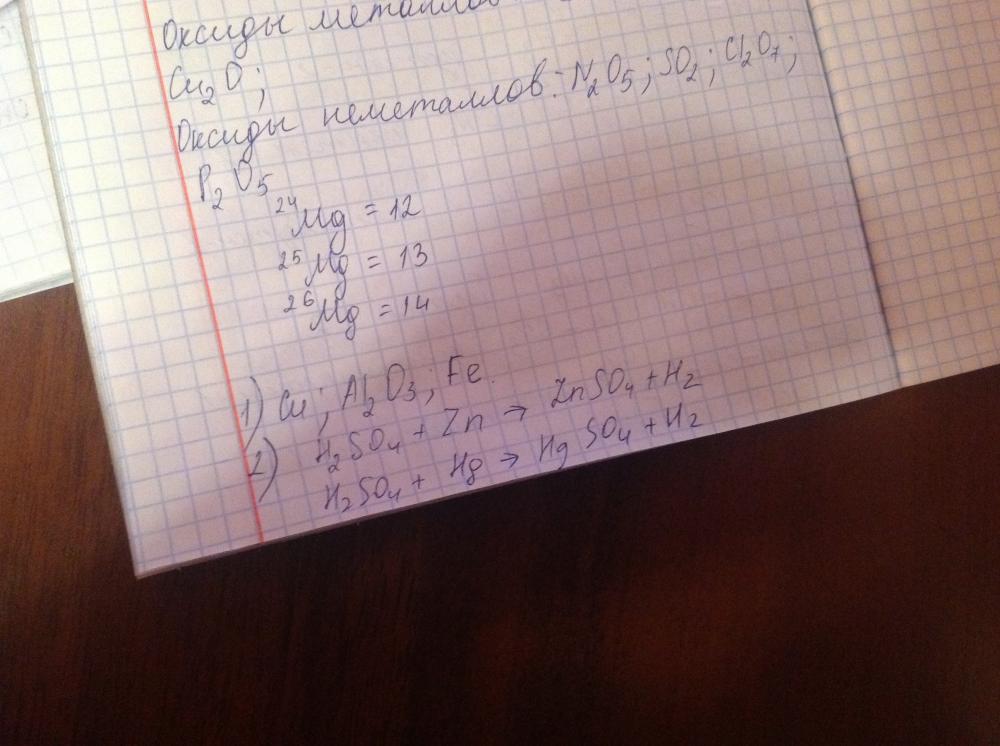 Оксиды металлов
Cu₂O;
Оксиды неметаллов: N₂O₅; SO₂; Cl₂O₇;
P₂O₅
²⁴Mg = 12
²⁵Mg = 13
²⁶Mg = 14
1) Cu; Al₂O₃; Fe.
2) H₂SO₄ + Zn → ZnSO₄ + H₂
H₂SO₄ + Hg → Hg SO₄ + H₂